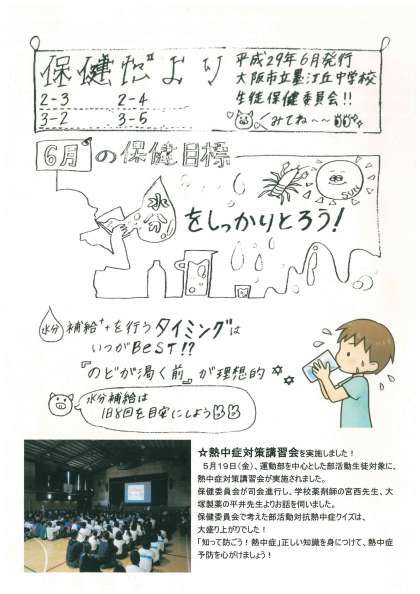 保健だより
2-3 2-4
3-2 3-5
平成29年6月発行
大阪市立墨江丘中学校
生徒保健委員会!!
くみてね〜〜
6月の保健目標
水分をしっかりとろう!
SUN
水分補給を行うタイミングは
いつがBeST!?
『のどが渇く前』が理想的
水分補給は
1日8回を目安にしよう
☆熱中症対策講習会を実施しました!
5月19日(金)、運動部を中心とした部活動生徒対象に、
熱中症対策講習会が実施されました。
保健委員会が司会進行し、学校薬剤師の宮西先生、大
塚製薬の平井先生よりお話を伺いました。
保健委員会で考えた部活動対抗熱中症クイズは、
大盛り上がりでした!
「知って防ごう!熱中症」正しい知識を身につけて、熱中症
予防を心がけましょう!